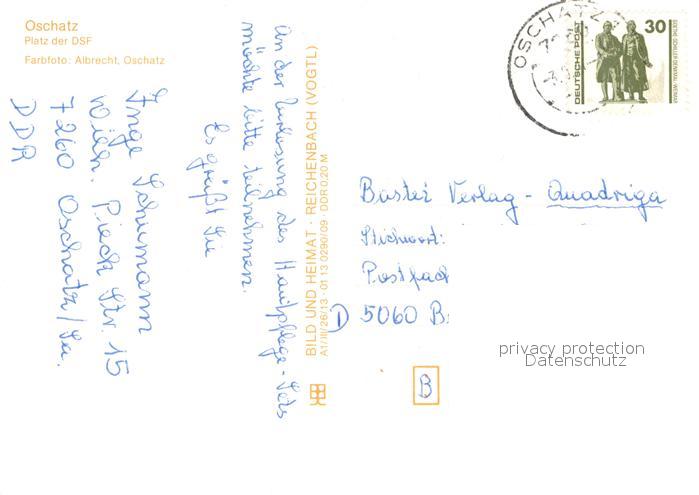 Oschatz
Platz der DSF
Farbfoto: Albrecht, Oschatz
Inge Schumann
Wilh. Pieck Str. 15
7260 Oschatz/Sa.
DDR
An der Verlosung des Hautpflege-Sets
möchte bitte teilnehmen.
Es grüßt Sie
BILD UND HEIMAT · REICHENBACH (VOGTL)
A1/III/26/13 · 01 13 0290/09 · DDR 0,20 M
OSCHATZ
DEUTSCHE POST
30
GOETHE-SCHILLER-DENKMAL, WEIMAR
Bastei Verlag - Quadriga
Stichwort:
Postfach
5060 B
B
privacy protection
Datenschutz